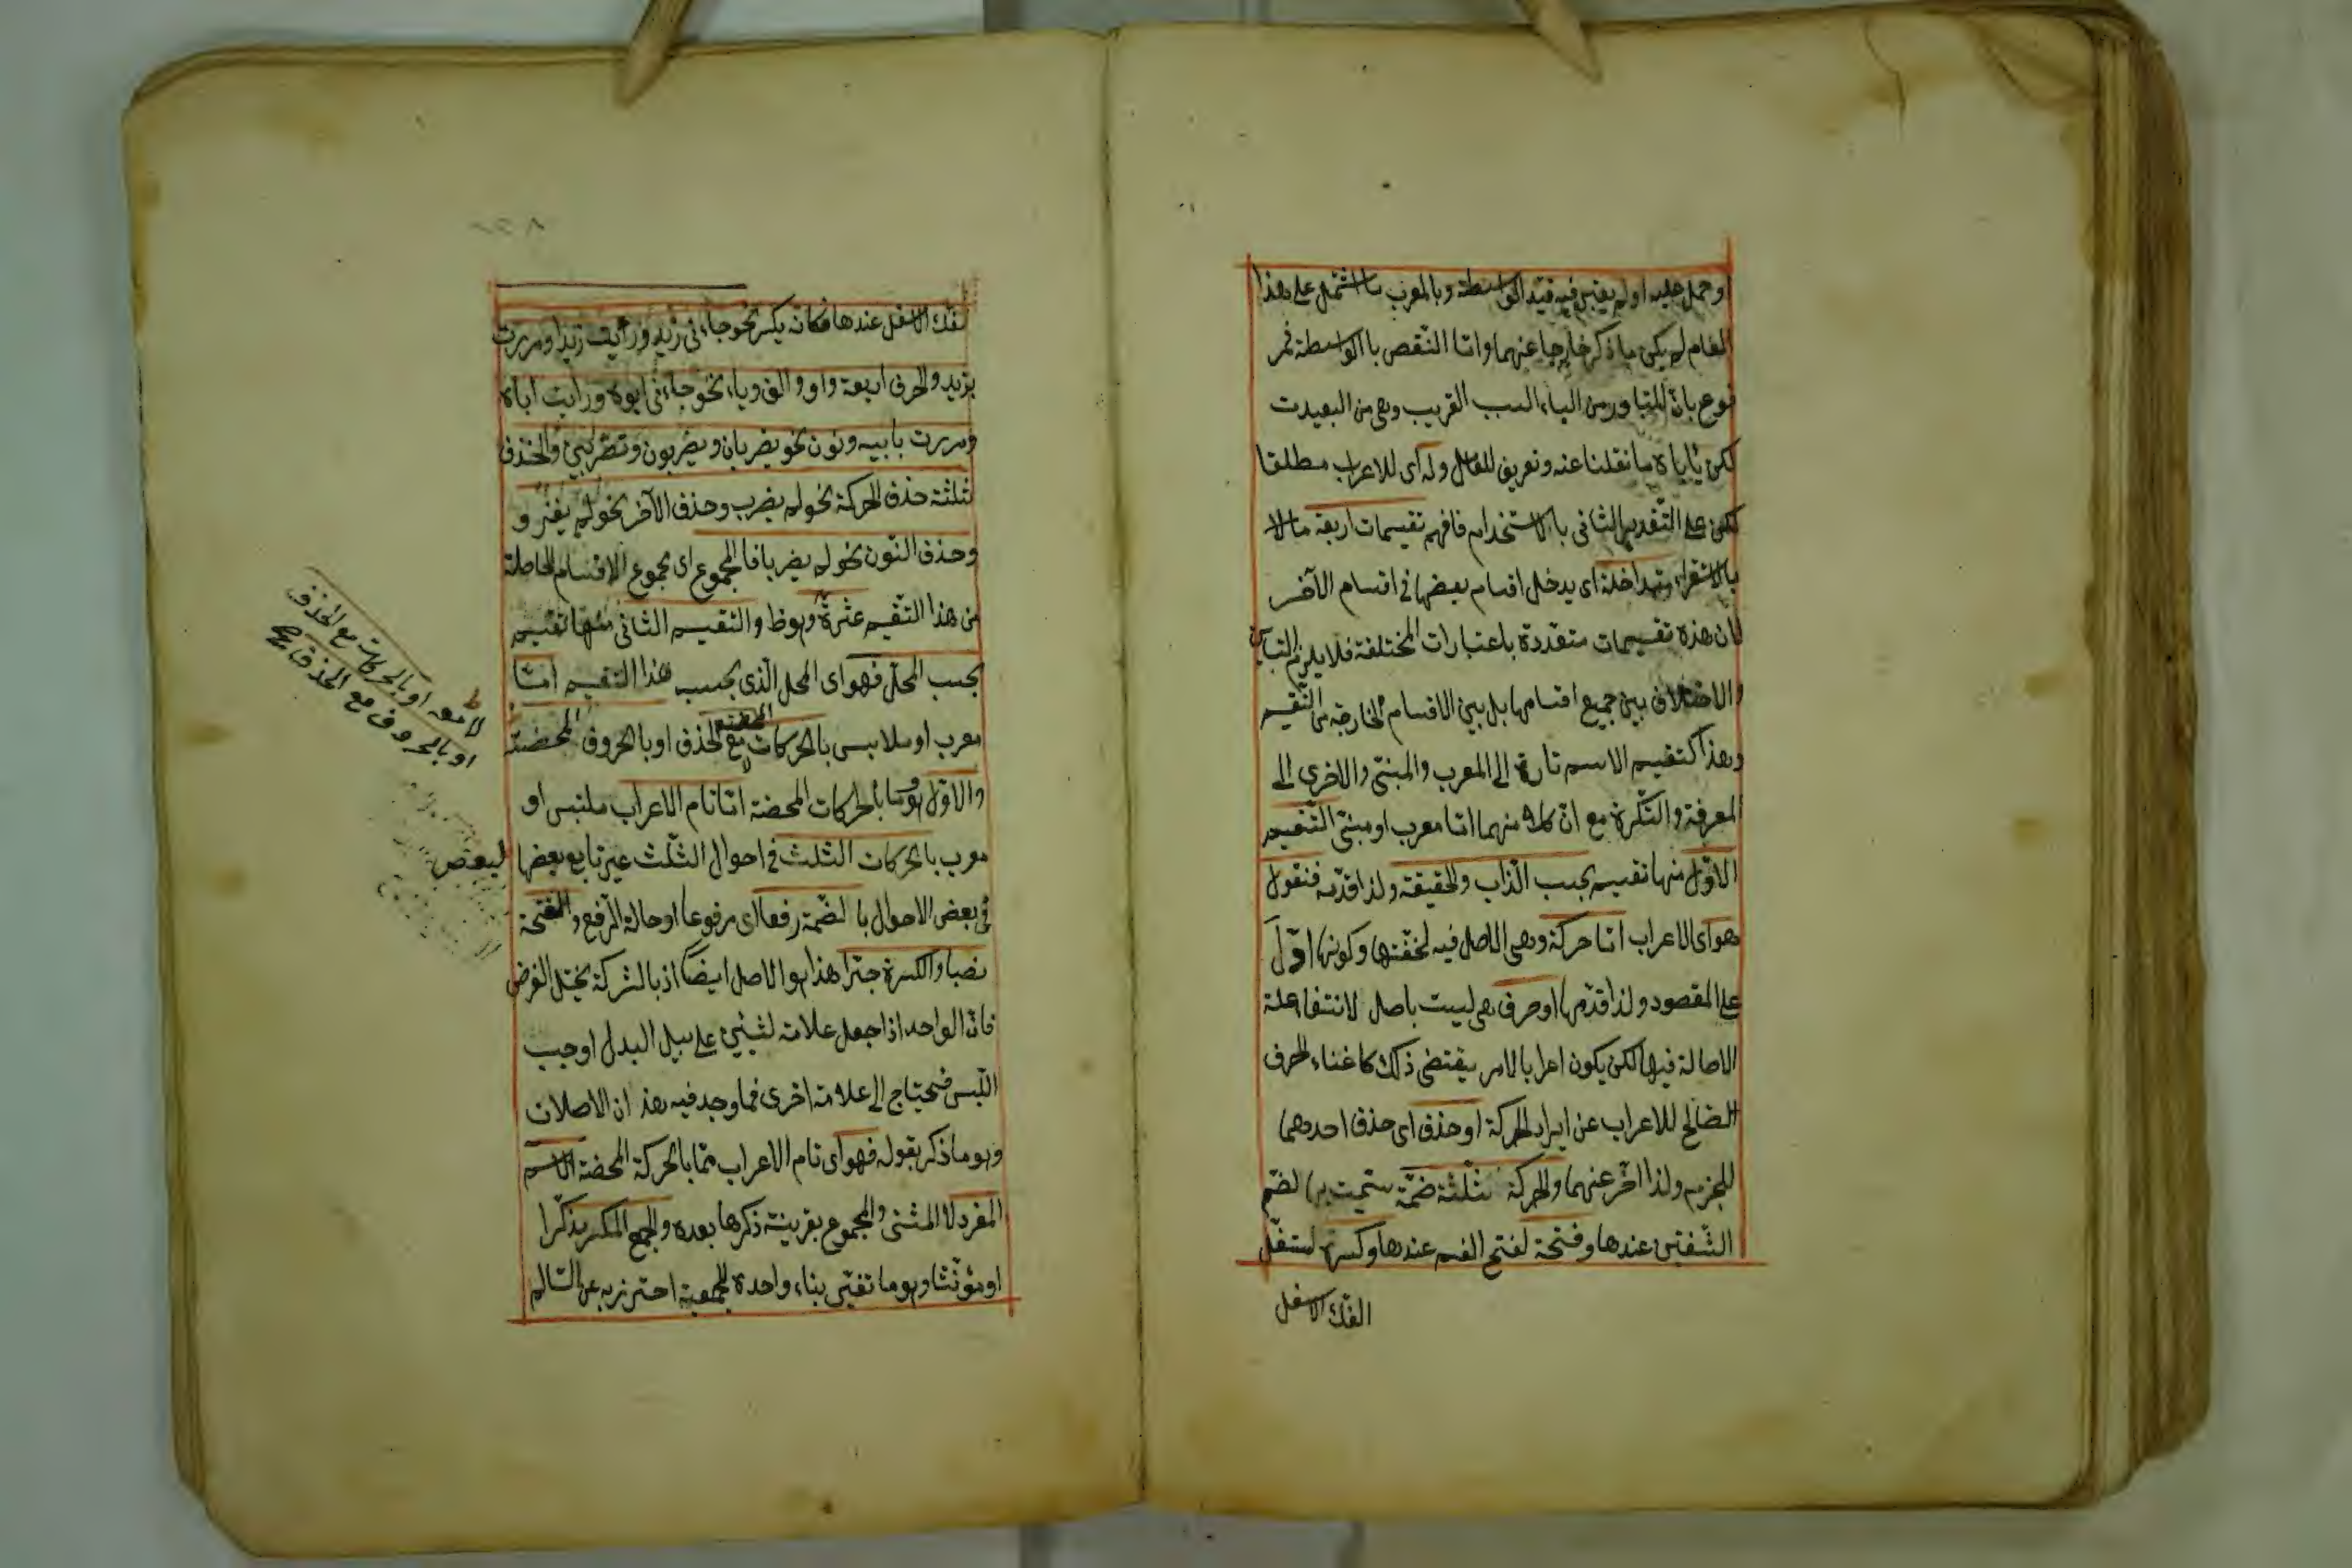 او حمل عليه او لم يعتبر فيه قيد الواسطة وبالمعرب ما اشتمل على هذا
العام لم يكن ما ذكر خارجا عنهما واما النقض بالواسطة فمر
فوع بان المتبادر من الباء السبب القريب وهى من البعيدت
لكن ياباه ما نقلنا عنه وتعريف للعامل وله اى للاعراب مطلقا
لكن على التقدير الثانى بالاستخدام فافهم تقسيمات اربعة مالا
بالاستقراء متداخلة اى يدخل اقسام بعضها فى اقسام الآخر
لان هذه تقسيمات متعددة باعتبارات المختلفة فلا يلزم التباين
والاختلاف بين جميع اقسامها بل بين الاقسام الخارجة من التقسيم
وهذا كتقسيم الاسم تارة الى المعرب والمبنى والاخرى الى
المعرفة والنكرة مع ان كلا منهما اما معرب او مبنى التقسيم
الاول منها تقسيم بحسب الذات والحقيقة ولذا قدمه فنقول
هو اى الاعراب اما حركة وهى الاصل فيه لخفتها وكونها اول
على المقصود ولذا قدمها او حرف هى ليست باصل لانتفاء علة
الاصالة فيها لكن يكون اعرابا لامر يقتضى ذلك كاغناء الحرف
الصالح للاعراب عن ايراد الحركة او حذف اى حذف احدهما
للجزم ولذا اخر عنهما والحركة ثلثة ضمة سميت بها لضم
الشفتين عندها وفتحة لفتح الفم عندها وكسرة لتسفل
الفك الاسفل
لفك الاسفل عندها فكانه يكسر نحو جاءنى زيد ورأيت زيدا ومررت
بزيد والحرف اربعة واو والف وياء نحو جاءنى ابوه ورايت اباه
ومررت بابيه ونون نحو يضربان ويضربون وتضربين والحذف
ثلثة حذف الحركة نحو لم يضرب وحذف الآخر نحو لم يغز و
وحذف النون نحو لم يضربا فالمجموع اى مجموع الاقسام الحاصلة
من هذا التقسيم عشرة وهو ظ والتقسيم الثانى منها تقسيم
بحسب المحل فهو اى المحل الذى بحسب هذا التقسيم اما
معرب او ملابس بالحركات المحضة مع الحذف او بالحروف المحضة
لا معه او بالحركات مع الحذف
او بالحروف مع الحذف صح
والاول هو ما بالحركات المحضة اما تام الاعراب ملتبس او
معرب بالحركات الثلث فى احوال الثلث غير تابع بعضها لبعض
فى بعض الاحوال بالضمة رفعا اى مرفوعا او حالة الرفع والفتحة
نصبا والكسرة جرا هذا هو الاصل ايضا اذ بالشركة يختل الغرض
فان الواحد اذا جعل علامة لشيئين على سبيل البدل اوجب
اللبس فيحتاج الى علامة اخرى فما وجد فيه هذان الاصلان
وهو ما ذكر بقوله فهو اى تام الاعراب مما بالحركة المحضة الاسم
المفرد لا المثنى والمجموع بقرينة ذكرها بعده والجمع المكسر مذكرا
او مؤنثا وهو ما تغير بناء واحده للجمعية احترز به عن السالم